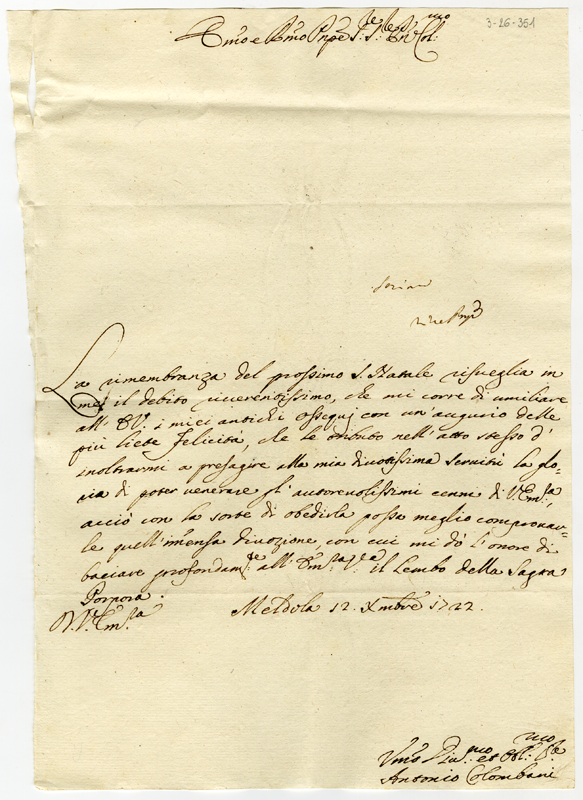 3-26-351
Emo e Rmo Pnpe Sre Sre Pne Col:mo
La rimembranza del prossimo S. Natale risueglia in
me il debito riuerentissimo, che mi corre di umiliare
all' E.V. i miei antichi ossequj con un'augurio delle
più liete felicità, che le tributo nell'atto stesso d'
inoltrarmi a presagire alla mia diuotissima seruitù la glo-
ria di poter venerare gl' autoreuolissimi cenni di V. Em:za
acciò con la sorte di obedirla possa meglio comprouar-
le quell'immensa diuozione con cui mi dò l'onore di
baciare profondam:te all' Em:za V:ra il lembo della Sagra
Porpora.
D. V. Em:za
Meldola 12. Xmbre 1722.
Umo Diu:mo et Obl:mo Se
Antonio Colombani